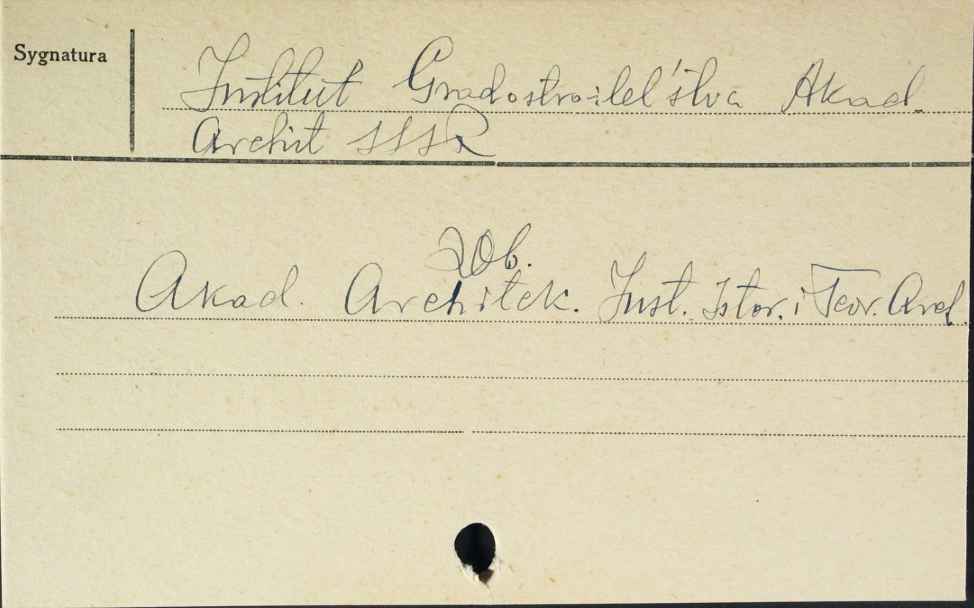 Sygnatura
Institut Gradostroitel'stva Akad.
Archit SSSR
Zob.
Akad. Architek. Inst. Istor. i Teor. Arch.